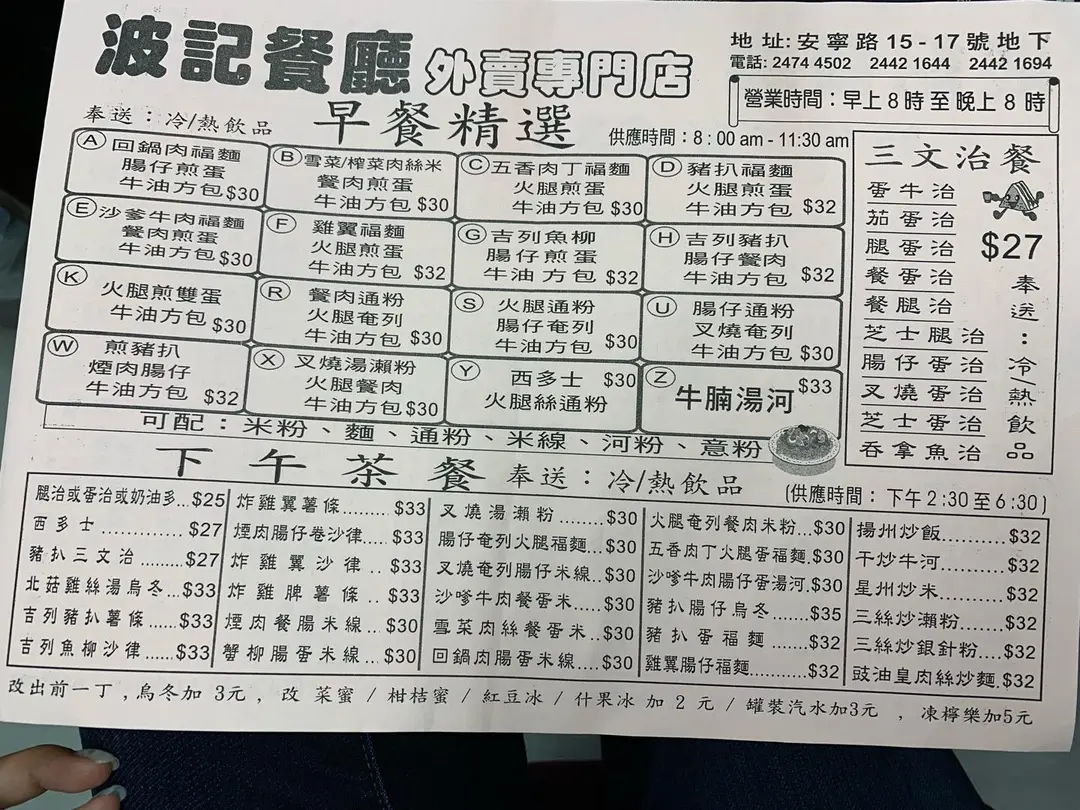 波記餐廳 外賣專門店
地址:安寧路15-17號地下
電話: 2474 4502 2442 1644 2442 1694
營業時間：早上8時至晚上8時
奉送：冷/熱飲品 早餐精選 供應時間：8:00 am - 11:30 am
A 回鍋肉福麵
腸仔煎蛋
牛油方包 $30
B 雪菜/榨菜肉絲米
餐肉煎蛋
牛油方包 $30
C 五香肉丁福麵
火腿煎蛋
牛油方包 $30
D 豬扒福麵
火腿煎蛋
牛油方包 $32
E 沙爹牛肉福麵
餐肉煎蛋
牛油方包 $30
F 雞翼福麵
火腿煎蛋
牛油方包 $32
G 吉列魚柳
腸仔煎蛋
牛油方包 $32
H 吉列豬扒
腸仔餐肉
牛油方包 $32
K 火腿煎雙蛋
牛油方包 $30
R 餐肉通粉
火腿奄列
牛油方包 $30
S 火腿通粉
腸仔奄列
牛油方包 $30
U 腸仔通粉
叉燒奄列
牛油方包 $30
W 煎豬扒
煙肉腸仔
牛油方包 $32
X 叉燒湯瀨粉
火腿餐肉
牛油方包 $30
Y 西多士 $30
火腿絲通粉
Z $33
牛腩湯河
可配：米粉、麵、通粉、米線、河粉、意粉
三文治餐
蛋牛治
茄蛋治
腿蛋治
餐蛋治
餐腿治
芝士腿治
腸仔蛋治
叉燒蛋治
芝士蛋治
吞拿魚治
$27
奉送：冷/熱飲品
下午茶餐 奉送：冷/熱飲品 (供應時間：下午2:30至6:30)
腿治或蛋治或奶油多...$25
西多士...............$27
豬扒三文治.........$27
北菇雞絲湯烏冬...$33
吉列豬扒薯條......$33
吉列魚柳沙律......$33
炸雞翼薯條.........$33
煙肉腸仔卷沙律....$33
炸雞翼沙律..$33
炸雞脾薯條..$33
煙肉餐腸米線...$30
蟹柳腸蛋米線...$30
叉燒湯瀨粉........$30
腸仔奄列火腿福麵...$30
叉燒奄列腸仔米線..$30
沙嗲牛肉餐蛋米....$30
雪菜肉絲餐蛋米..$30
回鍋肉腸蛋米線....$30
火腿奄列餐肉米粉...$30
五香肉丁火腿蛋福麵.$30
沙嗲牛肉腸仔蛋湯河.$30
豬扒腸仔烏冬......$35
豬扒蛋福麵.......$32
雞翼腸仔福麵...........$32
揚州炒飯...........$32
干炒牛河...........$32
星州炒米...........$32
三絲炒瀨粉........$32
三絲炒銀針粉....$32
豉油皇肉絲炒麵.$32
改出前一丁,烏冬加 3元, 改 菜蜜 / 柑桔蜜 / 紅豆冰 / 什果冰 加 2 元 / 罐裝汽水加3元 , 凍檸樂加5元